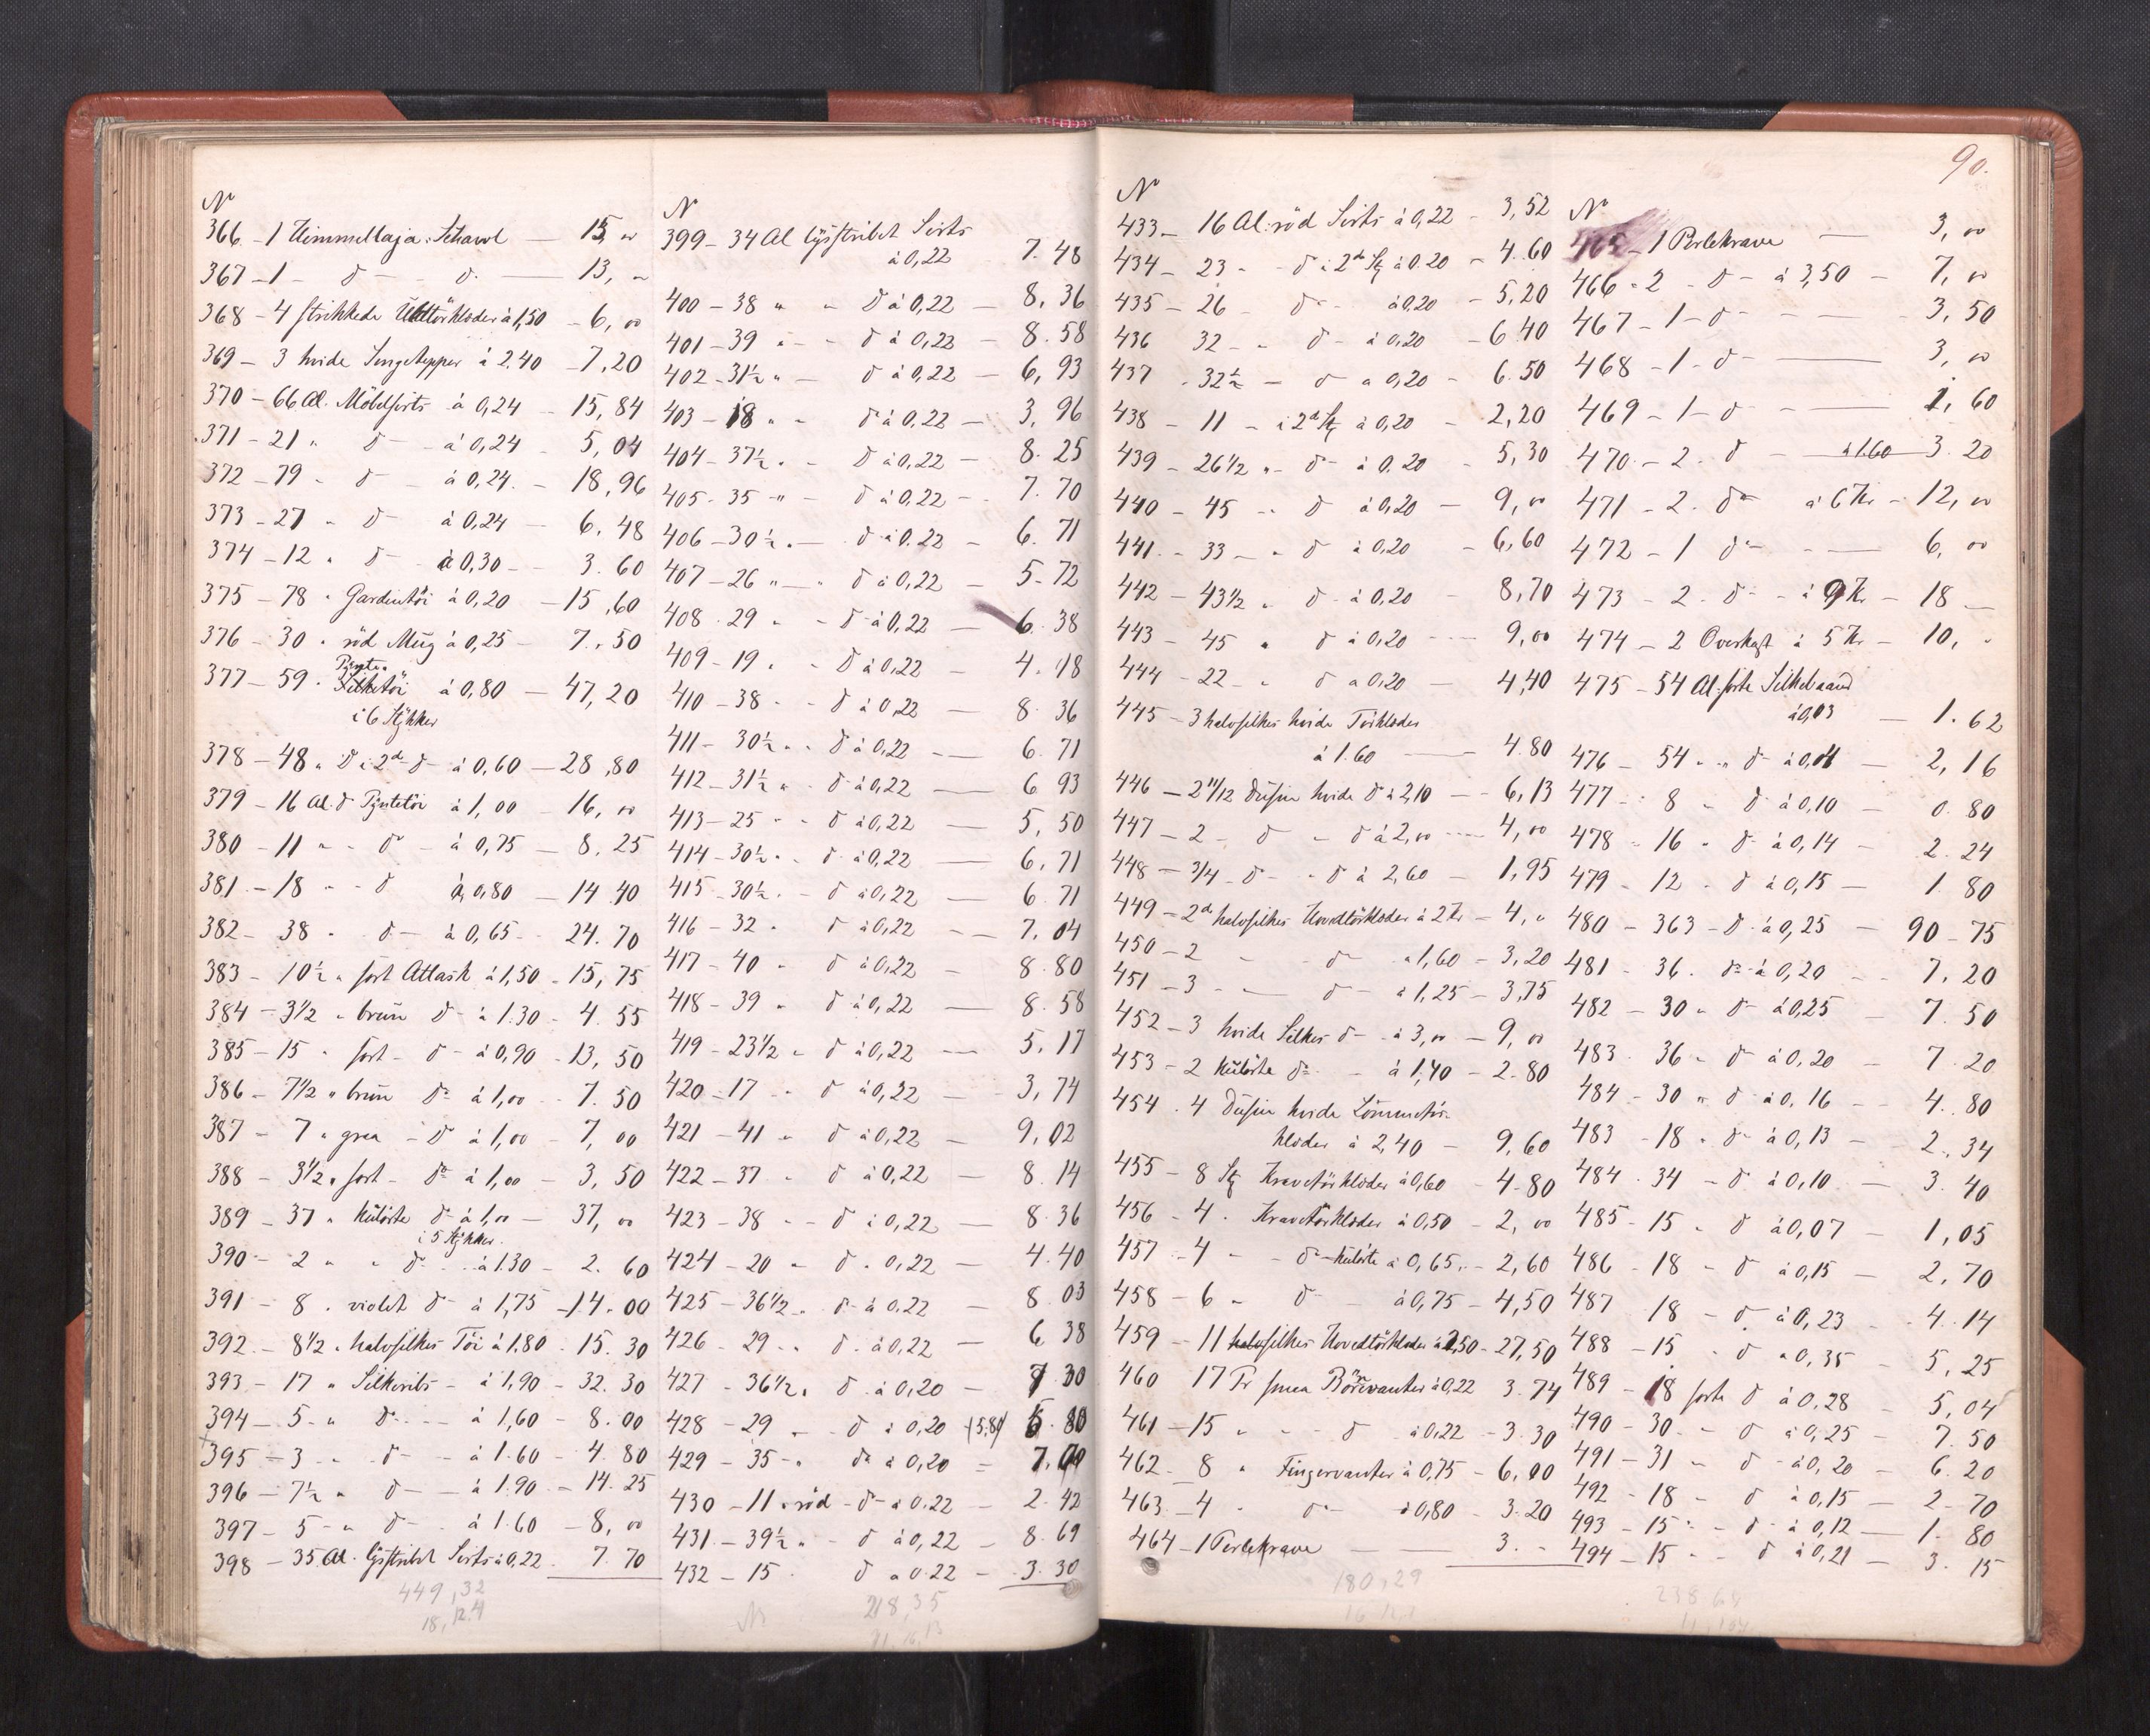 90.
No
366 - 1 Himmellaja-Schavl - 15, "
367 - 1 - do - do - 13, "
368 - 4 strikkede Uldtörklæder à 1,50 - 6, 00
369 - 3 hvide Sengetepper à 2.40 - 7,20
370 - 66 Al. Möbelsirts à 0,24 - 15,84
371 - 21 " do - à 0,24 - 5,04
372 - 79 - do - à 0,24 - 18,96
373 - 27 " do à 0,24 - 6,48
374 - 12 " do - à 0,30 - 3.60
375 - 78 " Gardintöi à 0,20 - 15,60
376 - 30 " röd Mug à 0,25 - 7,50
377 - 59 " Pynte- Silketöi à 0,80 - 47,20
i 6 Stykker
378 - 48 " do i 2de do à 0,60 - 28,80
379 - 16 Al. do Pyntetöi à 1,00 - 16, 00
380 - 11 " - do - à 0,75 - 8.25
381 - 18 " - do à 0,80 - 14.40
382 - 38 " do - à 0,65 - 24.70
383 - 10½ " sort Atlask à 1,50 - 15,75
384 - 3½ " brun do - à 1.30 - 4.55
385 - 15 " sort - do - à 0,90 - 13,50
386 - 7½ " brun do à 1,00 - 7.50
387 - 7 " graa - do à 1,00 - 7, 00
388 - 3½ " sort - do à 1,00 - 3,50
389 - 37 " kulörte do à 1,00 - 37, 00
i 5 Stykker
390 - 2 " " do - à 1.30 - 2.60
391 - 8 " violet do - à 1,75 - 14.00
392 - 8½ " halvsilkes Töi à 1.80 - 15.30
393 - 17 " Silkeribs - à 1,90 - 32.30
394 - 5 - " do - à 1,60 - 8.00
395 - 3 - do - à 1.60 - 4.80
396 - 7½ " do - à 1.90 - 14.25
397 - 5 - " do - à 1.60 - 8, 00
398 - 35 Al. lysstribet Sirts à 0,22 7.70
449,32
No
399 - 34 Al lysstribet Sirts
à 0,22 7.48
400 - 38 " " do à 0,22 - 8.36
401 - 39 " - do à 0,22 - 8.58
402 - 31½ " - do à 0,22 - 6,93
403 - 18 " - do à 0,22 - 3,96
404 - 37½ " - do à 0,22 - 8.25
405 - 35 " - do à 0,22 - 7.70
406 - 30½ " - do à 0.22 - 6.71
407 - 26 " - " do à 0,22 - 5.72
408 - 29 " - do à 0,22 - 6.38
409 - 19 " - do à 0,22 - 4.18
410 - 38 " - do à 0,22 - 8.36
411 - 30½ " - do à 0,22 - 6.71
412 - 31½ " - do à 0,22 - 6.93
413 - 25 " - do à 0,22 - 5.50
414 - 30½ " - do à 0,22 - 6.71
415 - 30½ " - do à 0,22 - 6.71
416 - 32 " do à 0,22 - 7.04
417 - 40 " do à 0,22 - 8.80
418 - 39 " do à 0,22 - 8.58
419 - 23½ " do à 0,22 - 5.17
420 - 17 " do à 0,22 - 3,74
421 - 41 " do à 0,22 - 9,02
422 - 37 " do à 0,22 - 8.14
423 - 38 " - do à 0,22 - 8.36
424 - 20 " do " 0,22 - 4.40
425 - 36½ " do à 0,22 - 8.03
426 - 29 " " do à 0,22 - 6.38
427 - 36½ " do à 0,20 - 7.30
428 - 29 " - do à 0,20 (5,80) 5.80
429 - 35 - " do à 0,20 = 7.00
430 - 11 " röd - do - à 0.22 - 2.42
431 - 39½ " - do à 0,22 - 8.69
432 - 15 " do à 0.22 - 3.30
218,35
No
433 - 16 Al. röd Sirts à 0,22 - 3,52
434 - 23 " - do i 2de St à 0.20 - 4.60
435 - 26 - do - à 0,20 - 5,20
436 32 - " do - à 0,20 - 6.40
437 - 32½ - do à 0,20 - 6.50
438 - 11 - i 2de St à 0,20 - 2,20
439 - 26½ " - do - à 0.20 - 5,30
440 - 45 - do à 0,20 - 9, 00
441 - 33 - " do à 0,20 - 6,60
442 - 43½ " do - à 0,20 - 8,70
443 - 45 " do à 0,20 - 9,00
444 - 22 - " do à 0,20 - 4,40
445 - 3 halvsilkes hvide Törklæder
à 1.60 - 4.80
446 - 2 11/12 Dusin hvide do à 2,10 - 6,13
447 - 2 - do - do à 2,00 - 4, 00
448 - 3/4 - do - do à 2,60 - 1,95
449 - 2de halvsilkes Hovedtörklæder à 2 Kr - 4, "
450 - 2 - do " 1,60 - 3,20
451 - 3 - do - à 1,25 - 3,75
452 - 3 hvide Silkes do - à 3,00 - 9, 00
453 - 2 kulörte do - à 1,40 - 2.80
454 . 4 Dusin hvide Lommetör-
klæder à 2,40 - 9,60
455 - 8 St Kravetörklæder à 0,60 - 4.80
456 - 4 . Kravetörklæder à 0,50 - 2, 00
457 - 4 - do - kulörte à 0,65 - 2,60
458 - 6 " do - à 0,75 - 4,50
459 - 11 halvsilkes Hovedtörklæder à 2,50 - 27,50
460 17 Pr smaa Börnevanter à 0,22 3.74
461 - 15 " - do à 0,22 - 3.30
462 - 8 " Fingervanter à 0,75 - 6,00
463 - 4 " do à 0,80 3.20
464 - 1 Perlekrave - 3. "
180,29
No
465 - 1 Perlekrave - 3, 00
466 - 2 - do - à 3,50 - 7, 00
467 - 1 - do - 3,50
468 - 1 - do - 3, 00
469 - 1 - do - 1,60
470 - 2 - do - à 1.60 - 3.20
471 - 2 - do à 6 Kr - 12, 00
472 - 1 do - 6, 00
473 - 2 - do - à 9 Kr - 18 -
474 - 2 Overkast à 5 Kr - 10, "
475 - 54 Al. sorte Silkebaand
à 0,03 - 1.62
476 - 54 " " do à 0,04 - 2,16
477 - 8 " do à 0,10 - 0.80
478 - 16 " do à 0,14 - 2.24
479 - 12 " do à 0,15 - 1.80
480 - 363 - do à 0,25 - 90-75
481 - 36 . do à 0,20 - 7.20
482 - 30 " do à 0,25 - 7.50
483 - 36 " do à 0,20 - 7.20
484 - 30 " do à 0,16 - 4.80
483 - 18 " do - à 0,13 - 2.34
484 . 34 - do à 0,10 - 3.40
485 - 15 " do à 0,07 - 1,05
486 - 18 - do à 0,15 - 2,70
487 18 - do à 0,23 - 4.14
488 - 15 - do " 0,35 - 5,25
489 - 18 sorte do à 0,28 - 5,04
490 - 30 - " do à 0,25 - 7.50
491 - 31 - do - à 0,20 - 6.20
492 - 18 - do à 0,15 - 2-70
493 - 15 " - do - à 0,12 - 1.80
494 - 15 " - do à 0,21 - 3.15